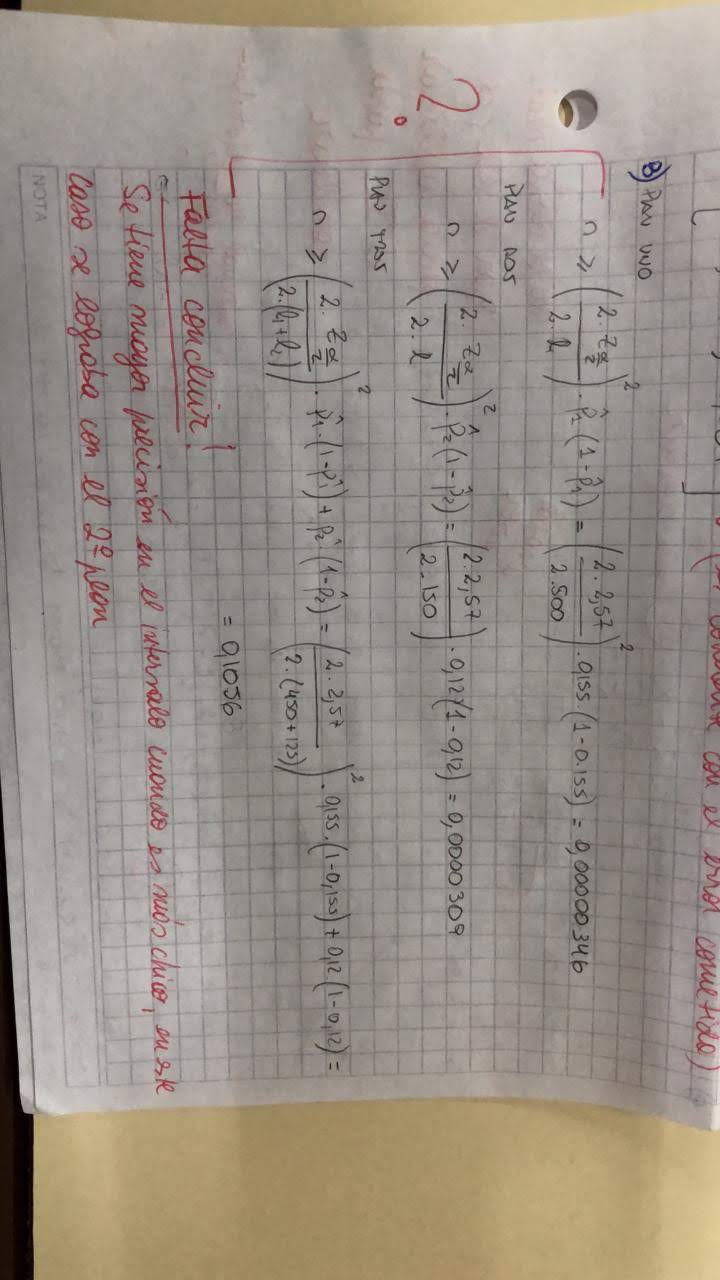 con el error cometido)
B) PLAN UNO
n ≥ (2. Zα/2 / 2. l)² . p̂1 (1-p̂1) = (2. 2,57 / 2.500)² . 0,155 (1-0.155) = 0,00000346
PLAN DOS
n ≥ (2. Zα/2 / 2. l)² . p̂2 (1-p̂2) = (2. 2,57 / 2.150) . 0,12 (1-0,12) = 0,0000309
PLAN TRES
n ≥ (2. Zα/2 / 2.(l1+l2))² . p̂1.(1-p̂1) + p̂2 (1-p̂2) = (2. 2,57 / 2.(450+125))² . 0,155.(1-0,155) + 0,12 (1-0,12) =
?
= 0,1056
Falta concluir!
Se tiene mayor precisión en el intervalo cuando es más chico, en este
caso se lograba con el 2º plan
NOTA